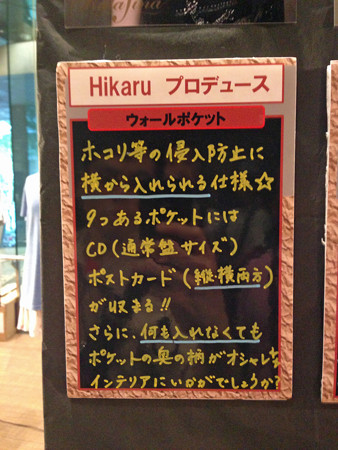 Hikaru プロデュース
ウォールポケット
ホコリ等の侵入防止に
横から入れられる仕様☆
9つあるポケットには
CD(通常盤サイズ)
ポストカード(縦・横両方)
が収まる!!
さらに、何も入れなくても
ポケットの奥の柄がオシャレ☆
インテリアにいかがでしょうか?